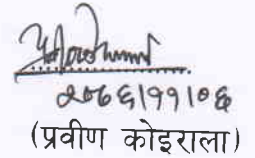 २०७६।११।०६
(प्रवीण कोइराला)